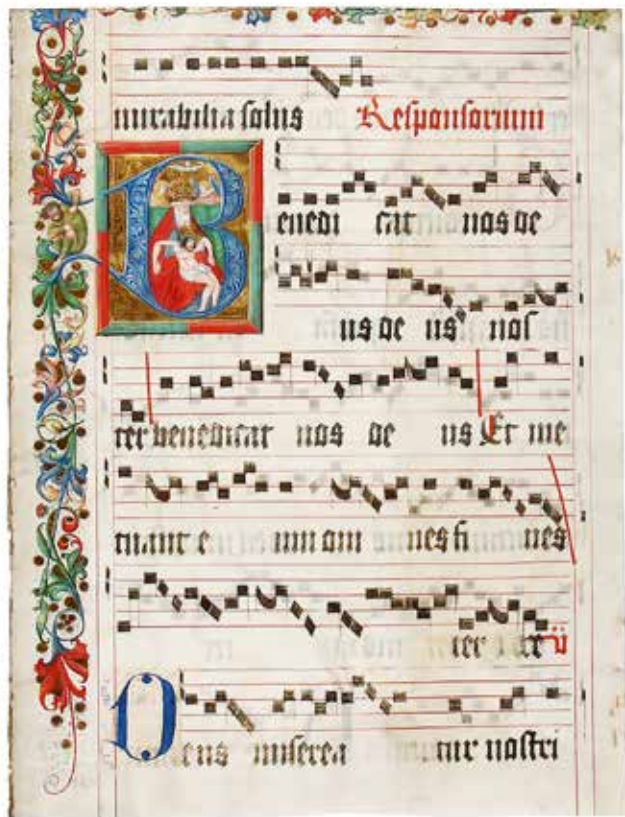 mirabilia solus Responsorium
Benedi cat nos de
us de us nos
ter benedicat nos de us Et me
tuant e um om nes fi nes
ter rae
Deus miserea tur nostri